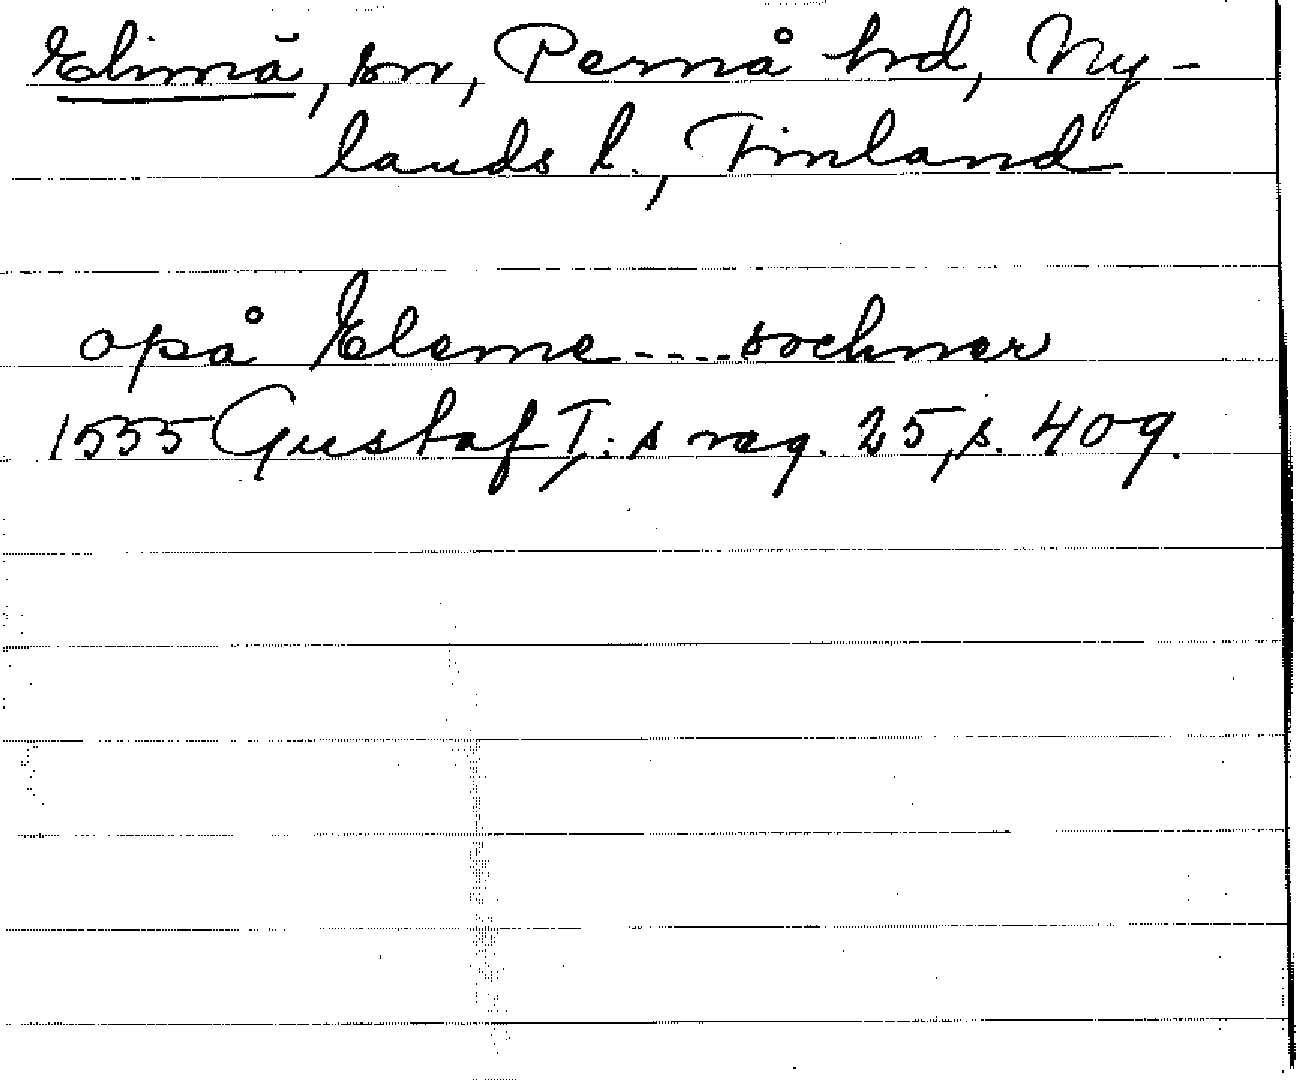 Elimä, sn, Pernå hd, Ny-
lands l., Finland
opå Eleme----sochner
1555 Gustaf I:s reg. 25, s. 409.